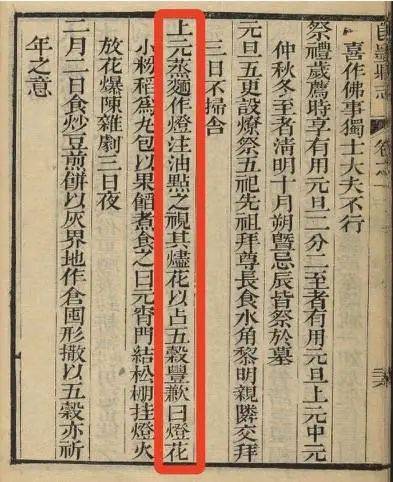 喜作佛事獨士大夫不行
祭禮歲薦時享有用元旦二分二至者有用元旦上元中元
仲秋冬至者清明十月朔曁忌辰皆祭於墓
元旦五更設燎祭五祀先祖拜尊長食水角黎明親隣交拜
三日不掃舍
上元蒸麵作燈注油點之視其燼花以占五穀豐歉曰燈花
小粉稻為丸包以果餡煮食之曰元宵門結松棚挂燈火
放花爆陳雜劇三日夜
二月二日食炒豆煎餅以灰界地作倉囤形撒以五穀亦祈
年之意